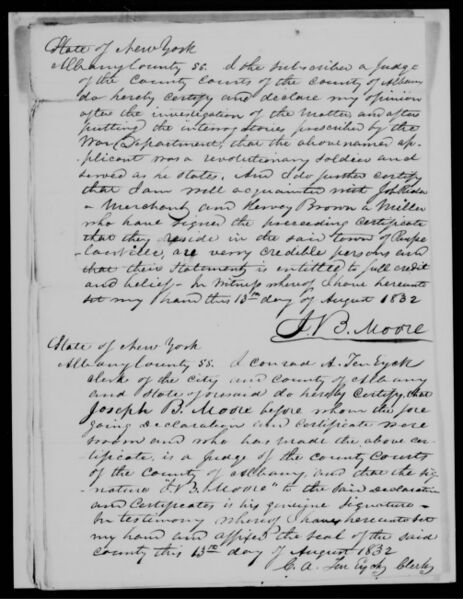 State of New York
Albany County SS. I the subscriber a Judge
of the County Courts of the County of Albany
do hereby certify and declare my opinion
after the investigation of the Matter and after
putting the interrogatories prescribed by the
War Department, that the above named ap-
plicant was a revolutionary soldier and
served as he states, And I do further certify
that I am well acquainted with
a Merchant and Harvey Brown a Miller
who have signed the preceeding certificate
that they reside in the said town of
are verry credible persons and
that their Statement is entitled to full credit
and belief - In Witness whereof I have hereunto
set my hand this 13th day of August 1832
J B. Moore
State of New York
Albany County SS. I Conrad A. Ten Eyck
clerk of the city and County of Albany
and State aforesaid do hereby Certify, that
Joseph B. Moore before whom the fore
going Declaration and Certificate were
sworn and who has made the above cer-
tificate, is a Judge of the County Courts
of the County of Albany, and that the sig-
nature "J B. Moore" to the said declaration
and Certificates is his genuine Signature -
In testimony whereof I have hereunto set
my hand and affixed the seal of the said
County this 13th day of August 1832
C. A. Ten Eyck Clerk